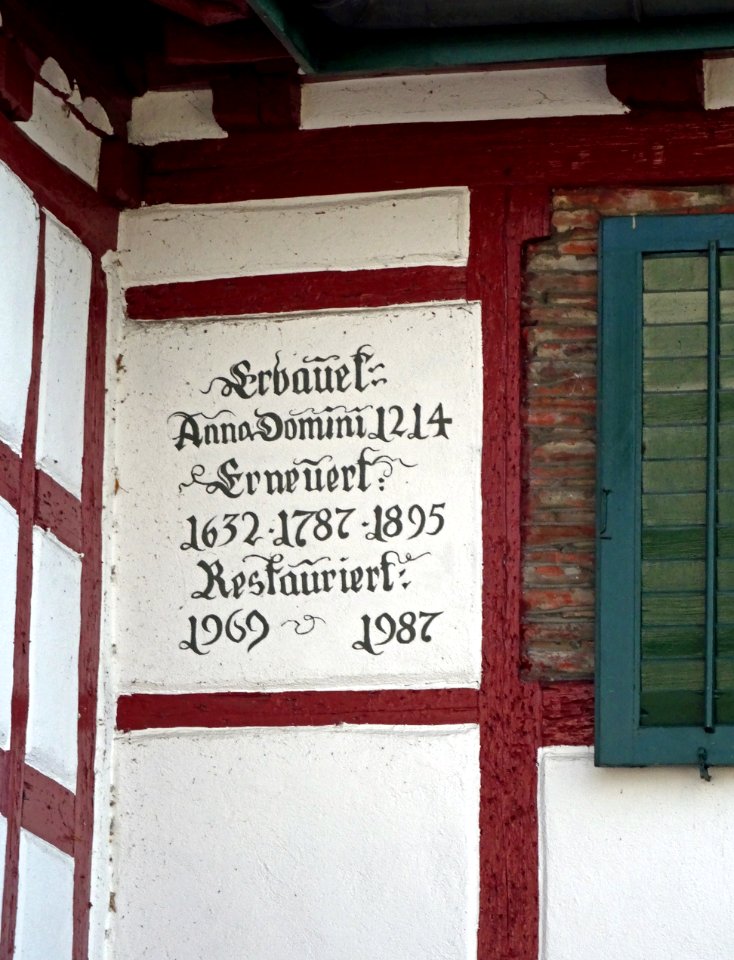 Erbauet:
Anna Domini 1214
Erneuert:
1632 · 1787 · 1895
Restauriert:
1969 ~ 1987